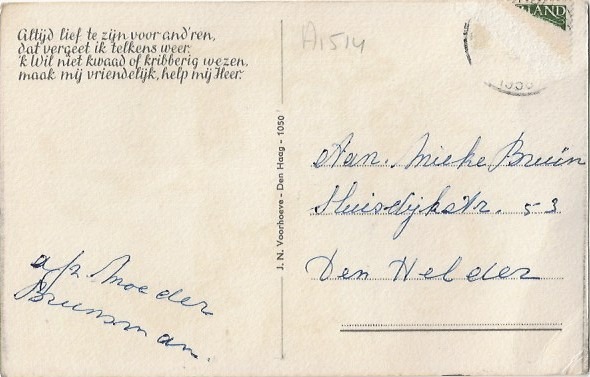 Altijd lief te zijn voor and'ren,
dat vergeet ik telkens weer.
'k Wil niet kwaad of kribberig wezen,
maak mij vriendelijk, help mij Heer.
A1514
LAND
J. N. Voorhoeve - Den Haag - 1050
Aan. Mieke Bruin
Sluisdijkstr. 53
Den Helder
Moeder
Bruinsman.